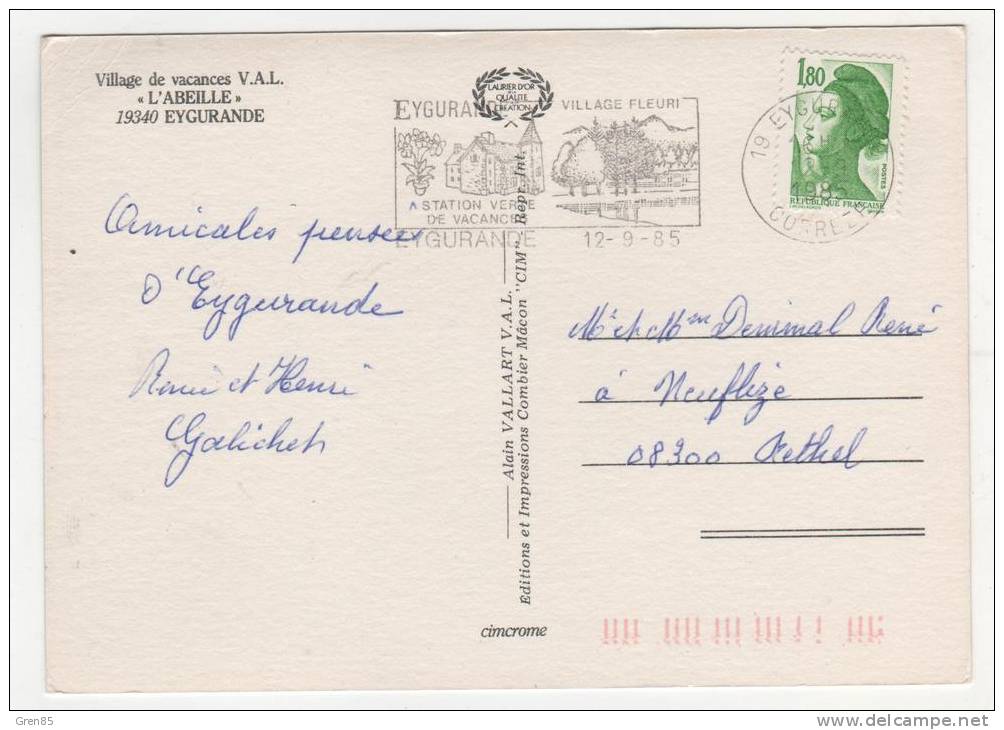 Village de vacances V.A.L.
« L'ABEILLE »
19340 EYGURANDE
LAURIER D'OR
DE LA
QUALITE
CREATION
EYGURANDE
VILLAGE FLEURI
STATION VERTE
DE VACANCES
EYGURANDE 12-9-85
1,80
POSTES
REPUBLIQUE FRANÇAISE
19 EYGUR
1985
CORREZE
Amicales pensées
d'Eygurande
et Henri
Galichet
Alain VALLART V.A.L.
Editions et Impressions Combier Mâcon "CIM", Repr. Int.
Mr et Mme Demmal René
à Neuflize
08300 Rethel
cimcrome
Gren85
delcampe.net